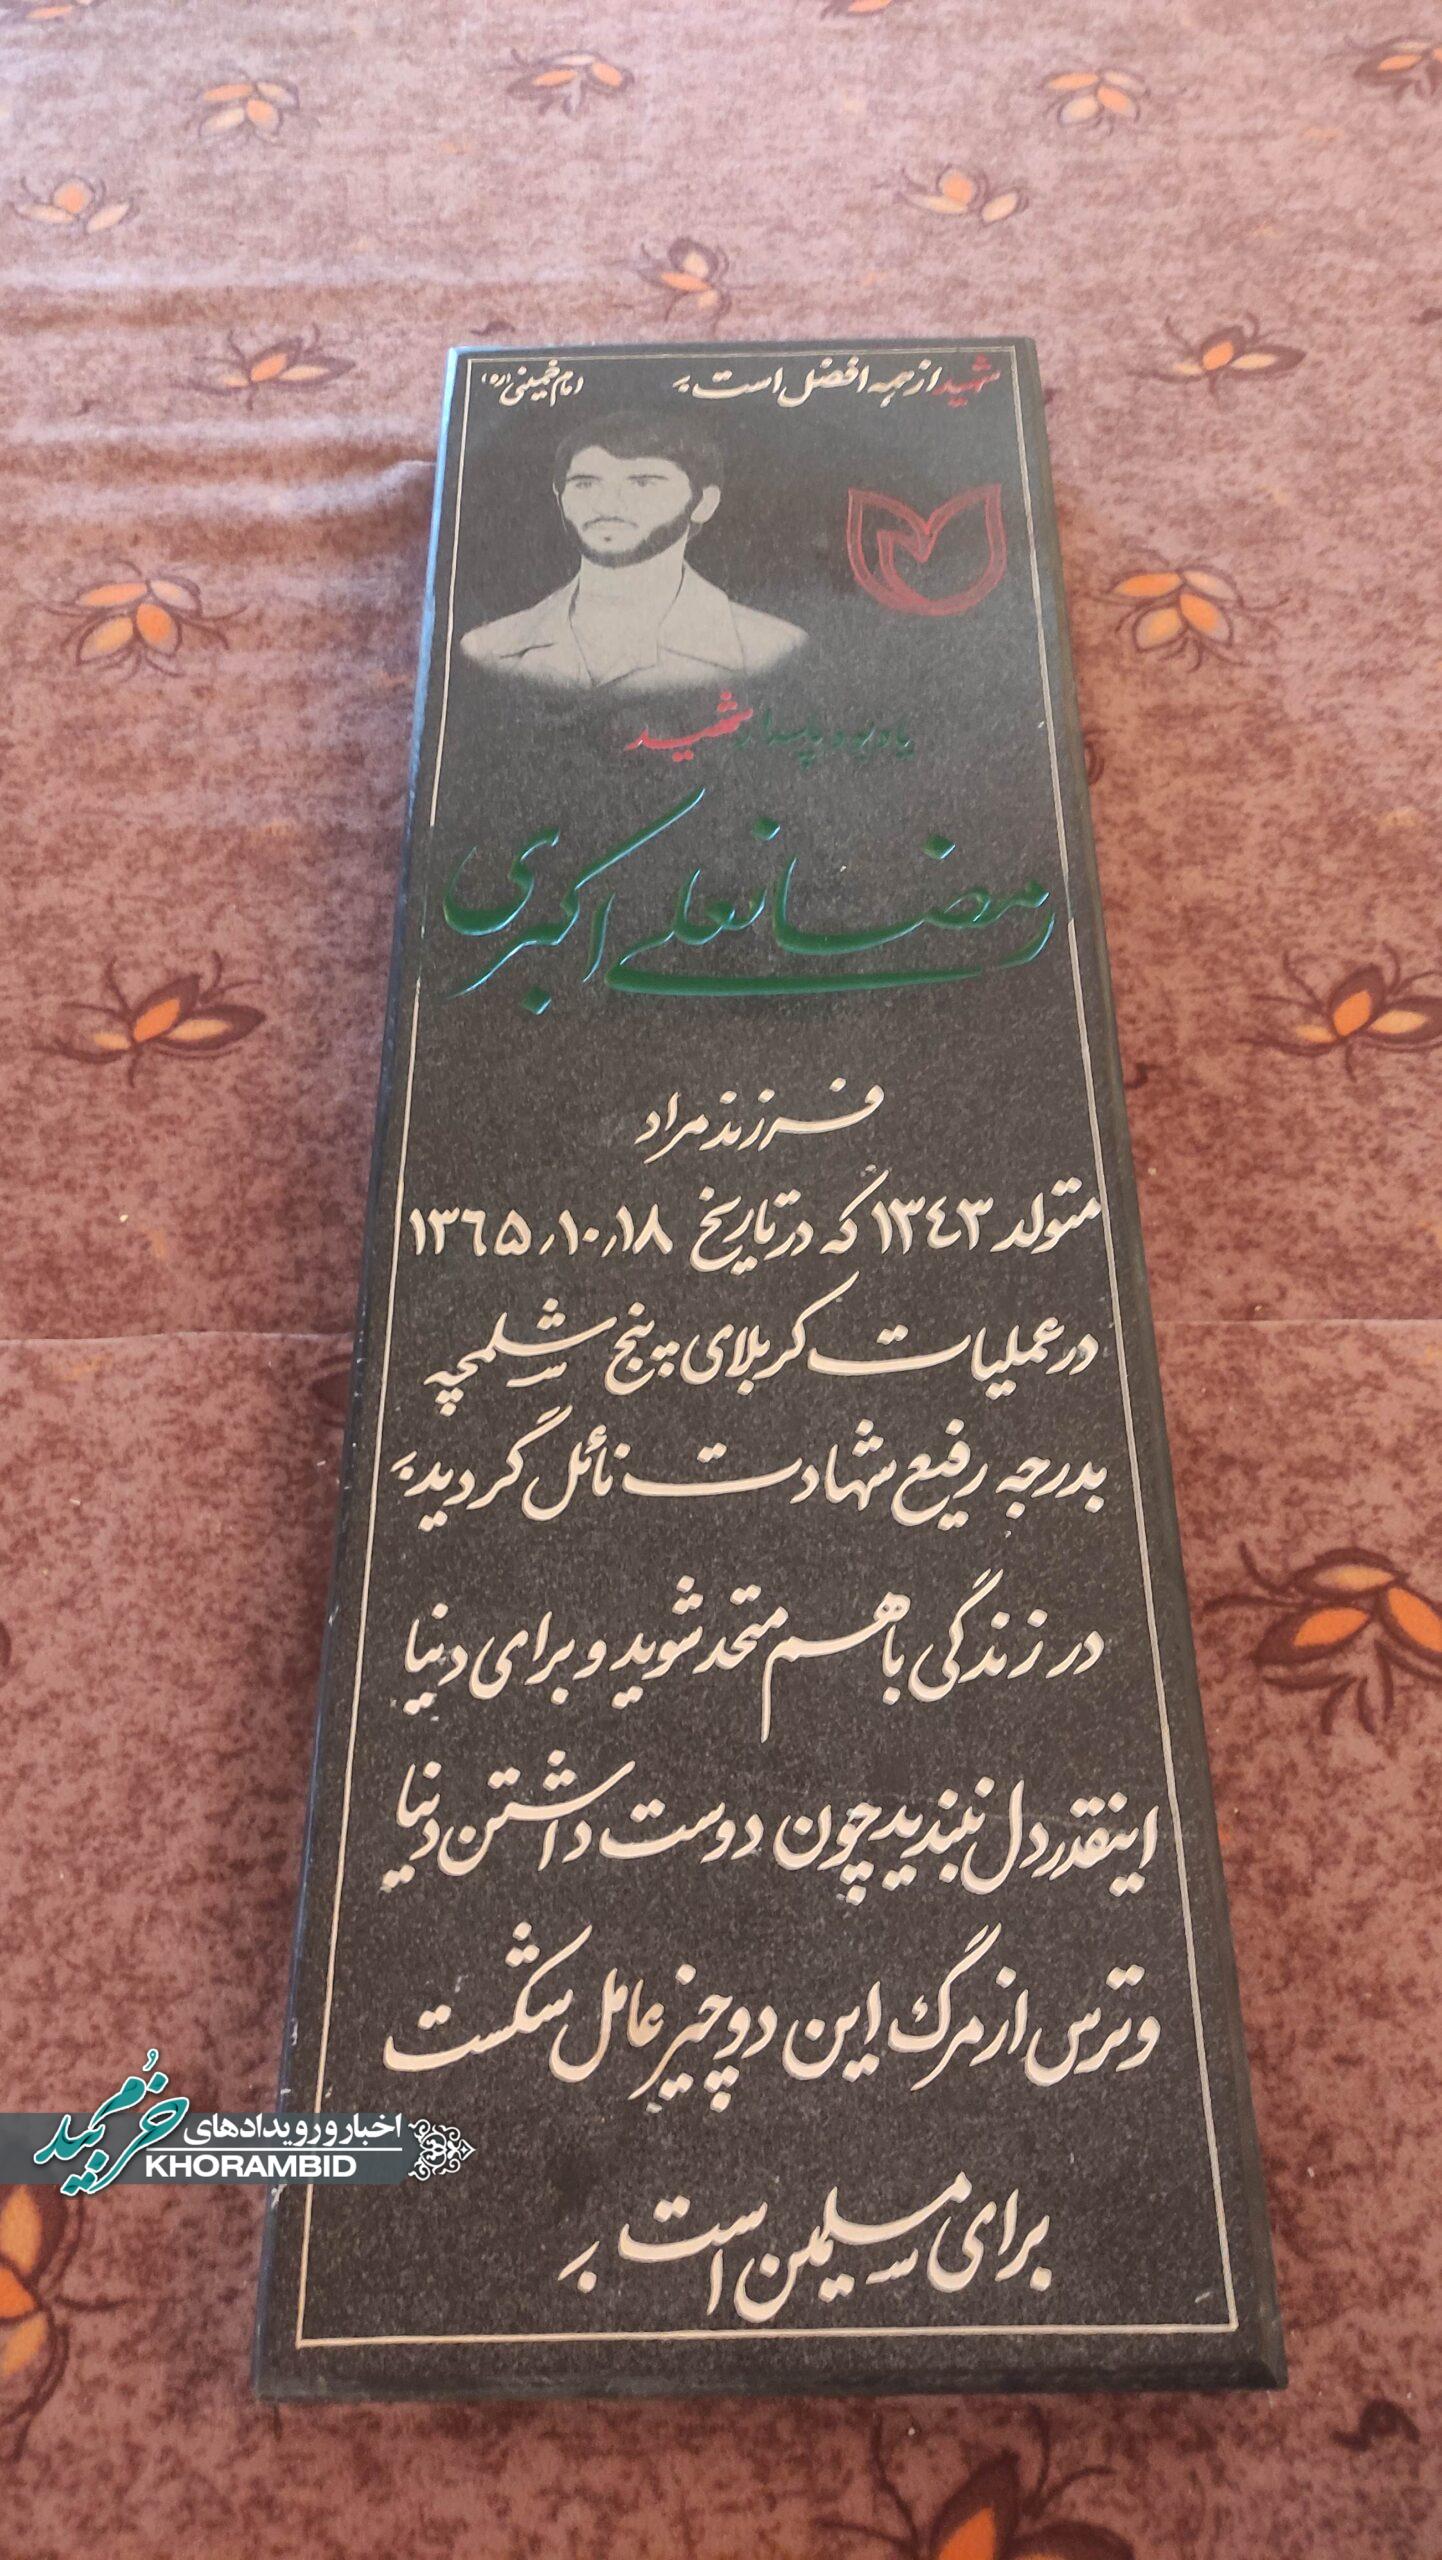 شهید از همه افضل است امام خمینی (ره)
یادبود پاسدار شهید
رمضانعلی اکبری
فرزند مراد
متولد ۱۳٤۳ که در تاریخ ۱۳٦۵٫۱۰٫۱۸
در عملیات کربلای پنج شلمچه
بدرجه رفیع شهادت نائل گردید
در زندگی با هم متحد شوید و برای دنیا
اینقدر دل نبندید چون دوست داشتن دنیا
و ترس از مرگ این دو چیز عامل شکست
برای مسلمین است
اخبار و رویدادهای
خرمبید
KHORAMBID